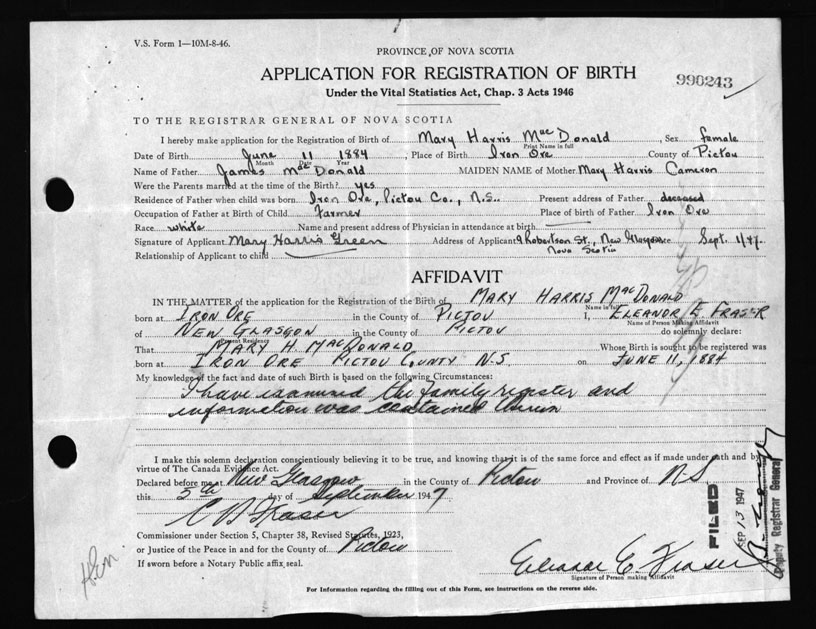 V.S. Form 1—10M-8-46.
PROVINCE OF NOVA SCOTIA
APPLICATION FOR REGISTRATION OF BIRTH
990243
Under the Vital Statistics Act, Chap. 3 Acts 1946
TO THE REGISTRAR GENERAL OF NOVA SCOTIA
I hereby make application for the Registration of Birth of Mary Harris MacDonald Sex female
Print Name in full
Date of Birth June 11 1884, Place of Birth Iron Ore County of Pictou
Month Day Year
Name of Father James MacDonald MAIDEN NAME of Mother Mary Harris Cameron
Were the Parents married at the time of the Birth? yes
Residence of Father when child was born Iron Ore, Pictou Co., N.S. Present address of Father deceased
Occupation of Father at Birth of Child Farmer Place of birth of Father Iron Ore
Race white Name and present address of Physician in attendance at birth
Signature of Applicant Mary Harris Green Address of Applicant 9 Robertson St., New Glasgow Sept. 1/47.
Nova Scotia
Relationship of Applicant to child
AFFIDAVIT
IN THE MATTER of the application for the Registration of the Birth of MARY HARRIS MACDONALD
Name in full
born at IRON ORE in the County of PICTOU I, ELEANOR E. FRASER
Name of Person Making Affidavit
of NEW GLASGOW in the County of PICTOU do solemnly declare:
Present Residency
That MARY H. MACDONALD Whose Birth is sought to be registered was
born at IRON ORE PICTOU COUNTY N.S. on JUNE 11, 1884
My knowledge of the fact and date of such Birth is based on the following Circumstances:
I have examined the family register and
information was contained therein
I make this solemn declaration conscientiously believing it to be true, and knowing that it is of the same force and effect as if made under oath and by
virtue of The Canada Evidence Act.
Declared before me at New Glasgow in the County of Pictou and Province of N.S
this 5th day of September 1947
C B Fraser
Commissioner under Section 5, Chapter 38, Revised Statutes, 1923,
or Justice of the Peace in and for the County of Pictou
If sworn before a Notary Public affix seal.
Eleanor E. Fraser
Signature of Person making Affidavit
FILED
SEP 13 1947
Deputy Registrar General
For Information regarding the filling out of this Form, see instructions on the reverse side.